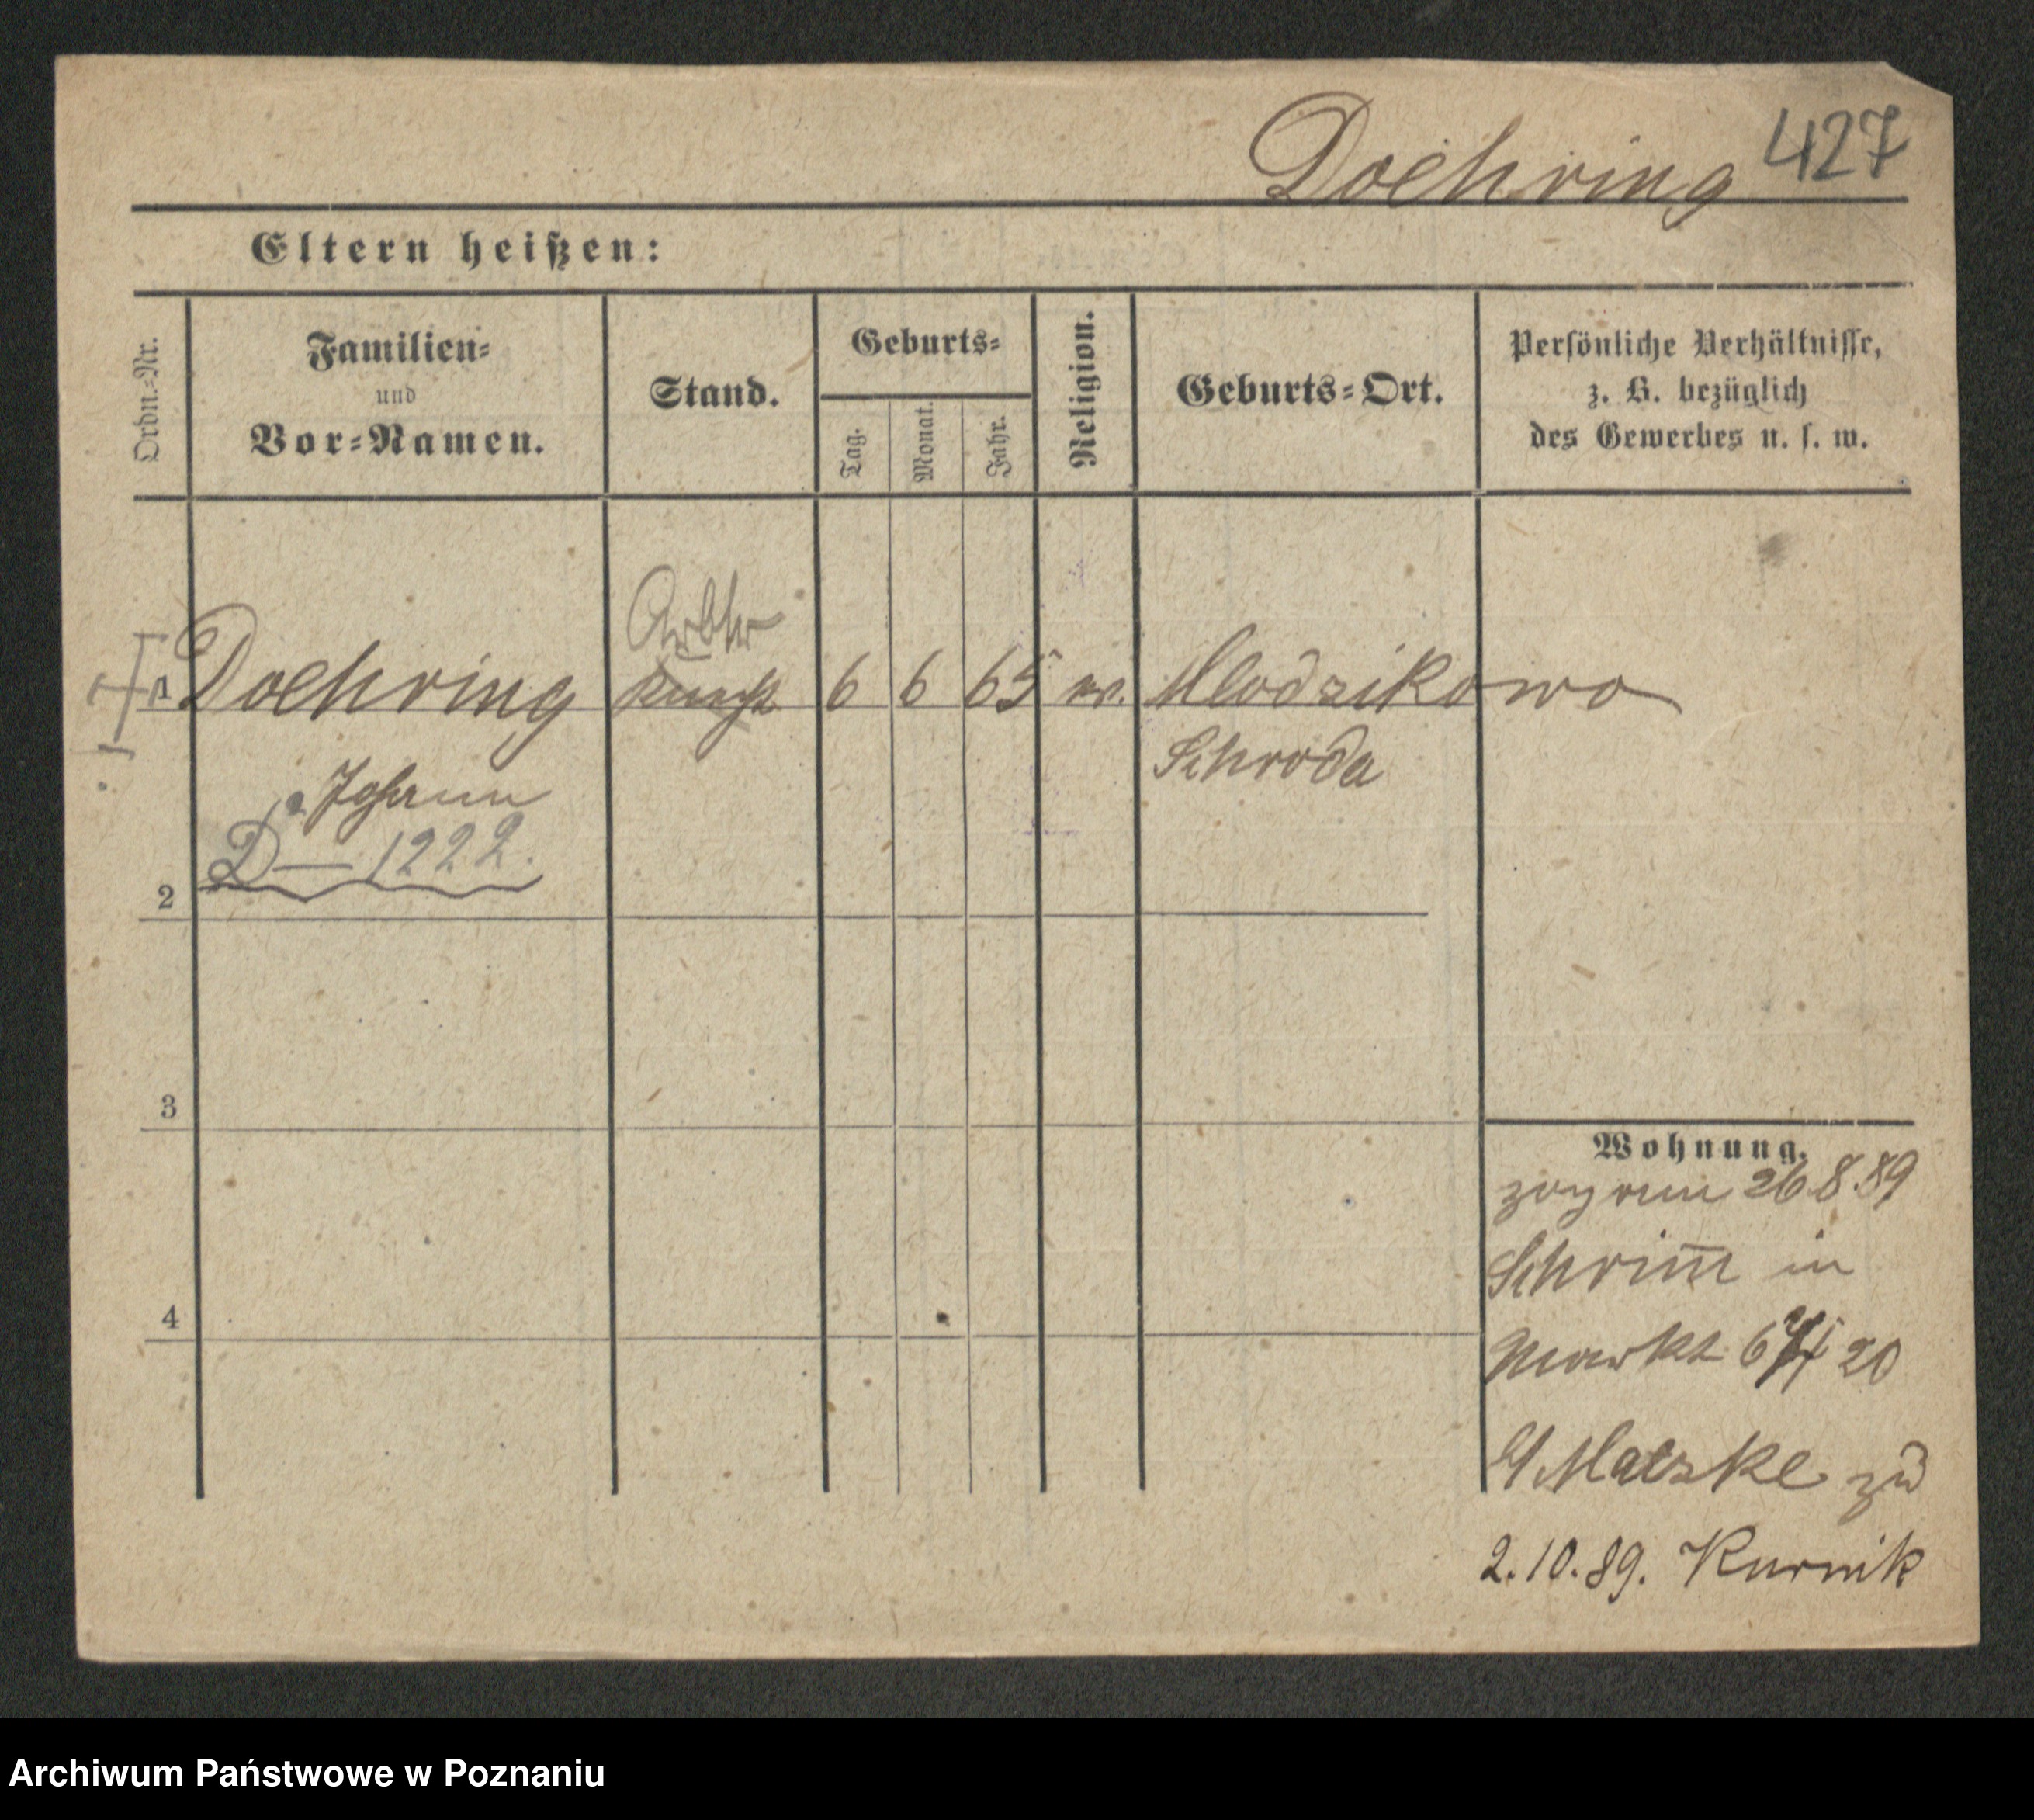 Doehring 427
Eltern heißen:
Ordn.-Nr.
Familien-
und
Vor-Namen.
Stand.
Geburts-
Tag.
Monat.
Jahr.
Religion.
Geburts-Ort.
Persönliche Verhältnisse,
z. B. bezüglich
des Gewerbes u. s. w.
Arbtr
1 Doehring Knecht 6 6 65 ev. Mlodzikowo
Schroda
Johann
D — 1222.
2
3
4
Wohnung.
zog am 26.8.89
Schrim̄ in
Markt 20
Matzke zu
2.10.89. Kurnik
Archiwum Państwowe w Poznaniu